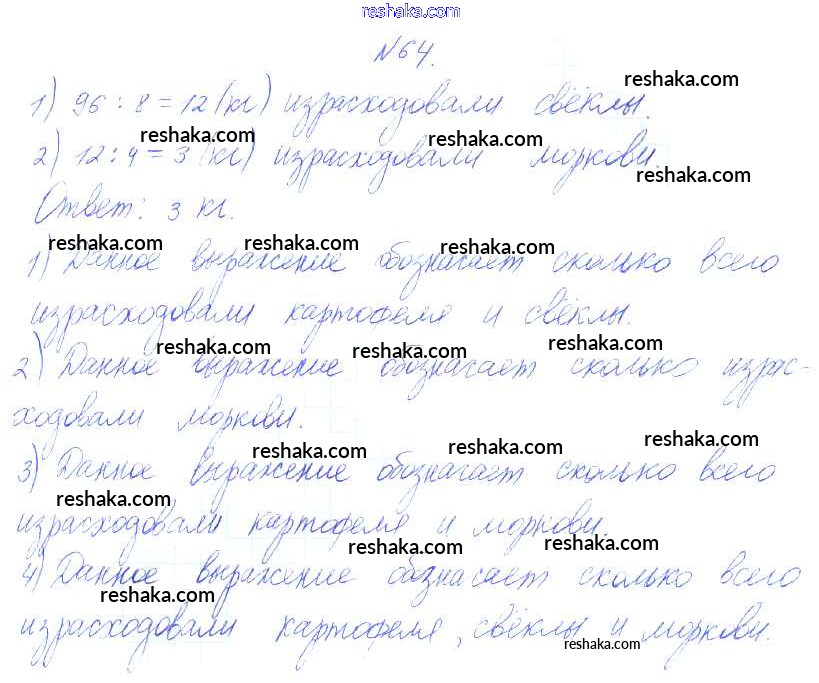 reshaka.com
№64.
reshaka.com
1) 96 : 8 = 12 (кг) израсходовали свёклы.
reshaka.com reshaka.com
2) 12 : 4 = 3 (кг) израсходовали моркови.
reshaka.com
Ответ: 3 кг.
reshaka.com reshaka.com reshaka.com
1) Данное выражение обозначает сколько всего
израсходовали картофеля и свёклы.
reshaka.com reshaka.com reshaka.com
2) Данное выражение обозначает сколько израс-
ходовали моркови.
reshaka.com reshaka.com reshaka.com
3) Данное выражение обозначает сколько всего
reshaka.com
израсходовали картофеля и моркови.
reshaka.com reshaka.com
4) Данное выражение обозначает сколько всего
reshaka.com
израсходовали картофеля, свёклы и моркови.
reshaka.com